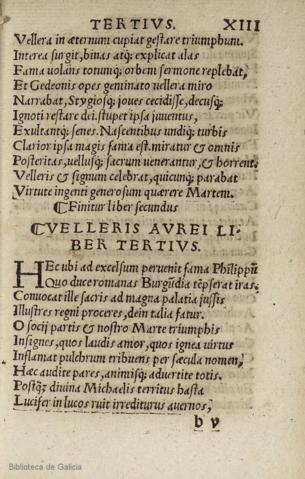 TERTIVS. XIII
Vellera in æternum cupiat gestare triumphum.
Interea surgit, binas atq; explicat alas
Fama uolans totumq; orbem sermone replebat,
Et Gedeonis opes geminato uellera miro
Narrabat, Stygiosq; ioues cecidisse, decusq;
Ignoti restare dei. stupet ipsa iuuentus,
Exultantq; senes. Nascentibus undiq; turbis
Clarior ipsa magis fama est. miratur & omnis
Posteritas, uellusq; sacrum uenerantur, & horrent.
Velleris & signum celebrat, quicunq; parabat
Virtute ingenti generosum quærere Martem.
⸿Finitur liber secundus
⸿VELLERIS AVREI LI-
BER TERTIVS.
HEc ubi ad excelsum peruenit fama Philippũ
Quo duce romanas Burgũdia tẽpserat iras:
Conuocat ille sacris ad magna palatia iussis
Illustres regni proceres, dein talia fatur.
O socij partis & nostro Marte triumphis
Insignes, quos laudis amor, quos ignea uirtus
Inflamat pulchrum tribuens per sæcula nomen,
Hæc audite pares, animisq; aduertite totis.
Postq; diuina Michaelis territus hasta
Lucifer in lucos ruit irrediturus auernos,
b v
Biblioteca de Galicia